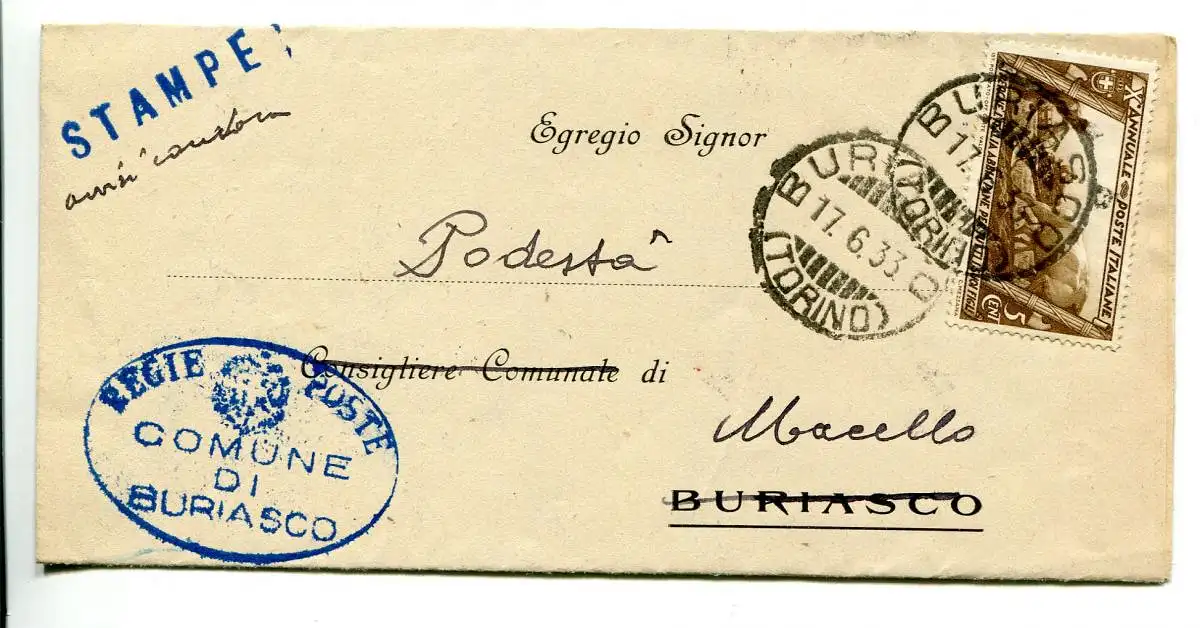 STAMPE
Egregio Signor
Podestà
Consigliere Comunale di
Macello
BURIASCO
REGIE POSTE
COMUNE
DI
BURIASCO
BURIASCO
17.6.33
(TORINO)
BURIASCO
17.6.33
(TORINO)
X° ANNUALE POSTE ITALIANE
5
CENT